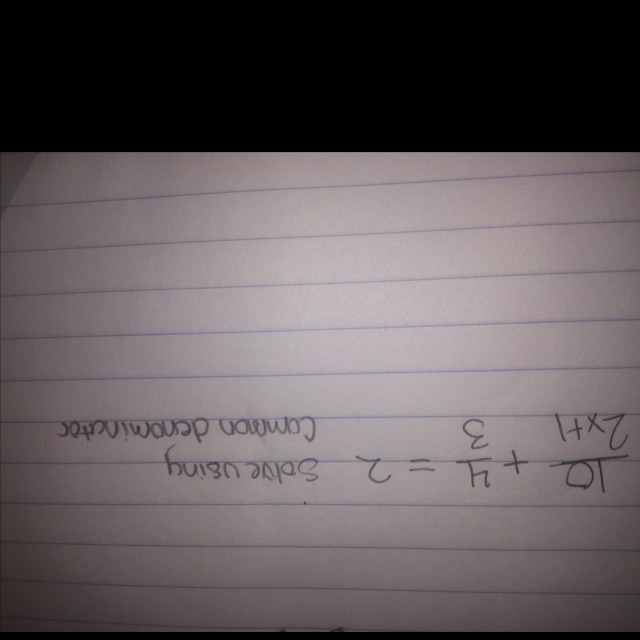 10/(2x+1) + 4/3 = 2 Solve using
common denominator